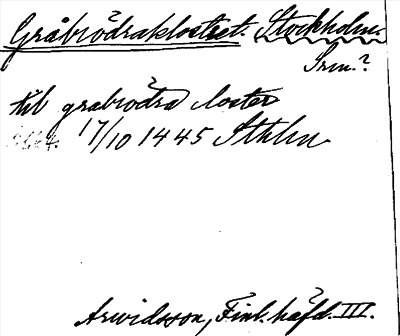 Gråbrödraklostret. Stockholm.
Srm.?
till grabrødra closter
17/10 1445 Sthlm
Arwidsson, Finl. häfd. III.